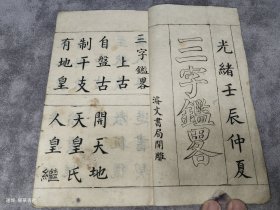 光緒壬辰仲夏
三字鑑畧
濬文書局開雕
三字鑑畧
上古
自盤古 開天地
制干支 天皇氏
有地皇 人皇繼